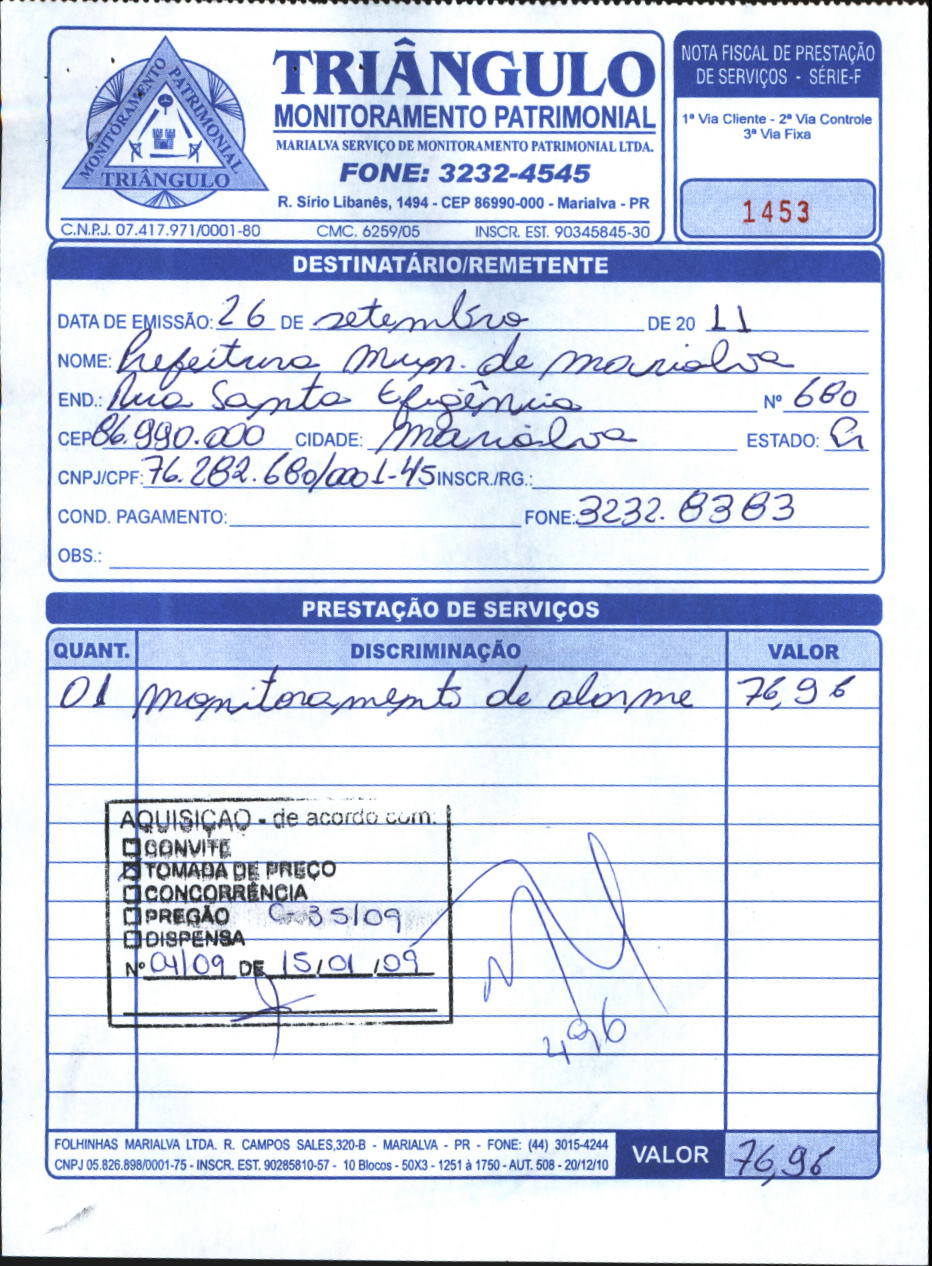 MONITORAMENTO PATRIMONIAL
TRIÂNGULO
TRIÂNGULO
MONITORAMENTO PATRIMONIAL
MARIALVA SERVIÇO DE MONITORAMENTO PATRIMONIAL LTDA.
FONE: 3232-4545
R. Sírio Libanês, 1494 - CEP 86990-000 - Marialva - PR
C.N.P.J. 07.417.971/0001-80 CMC. 6259/05 INSCR. EST. 90345845-30
NOTA FISCAL DE PRESTAÇÃO
DE SERVIÇOS - SÉRIE-F
1ª Via Cliente - 2ª Via Controle
3ª Via Fixa
1453
DESTINATÁRIO/REMETENTE
DATA DE EMISSÃO: 26 DE setembro DE 20 11
NOME: Prefeitura Mun. de Marialva
END.: Rua Santa Efigênia Nº 680
CEP 86.990.000 CIDADE: Marialva ESTADO: Pr
CNPJ/CPF: 76.282.680/0001-45 INSCR./RG.:
COND. PAGAMENTO: FONE: 3232.8383
OBS.:
PRESTAÇÃO DE SERVIÇOS
QUANT. DISCRIMINAÇÃO VALOR
01 monitoramento de alarme 76,96
AQUISIÇÃO - de acordo com:
CONVITE
TOMADA DE PREÇO
CONCORRÊNCIA
PREGÃO 035/09
DISPENSA
Nº 04/09 DE 15/01/09
496
FOLHINHAS MARIALVA LTDA. R. CAMPOS SALES,320-B - MARIALVA - PR - FONE: (44) 3015-4244
CNPJ 05.826.898/0001-75 - INSCR. EST. 90285810-57 - 10 Blocos - 50X3 - 1251 à 1750 - AUT. 508 - 20/12/10
VALOR 76,96